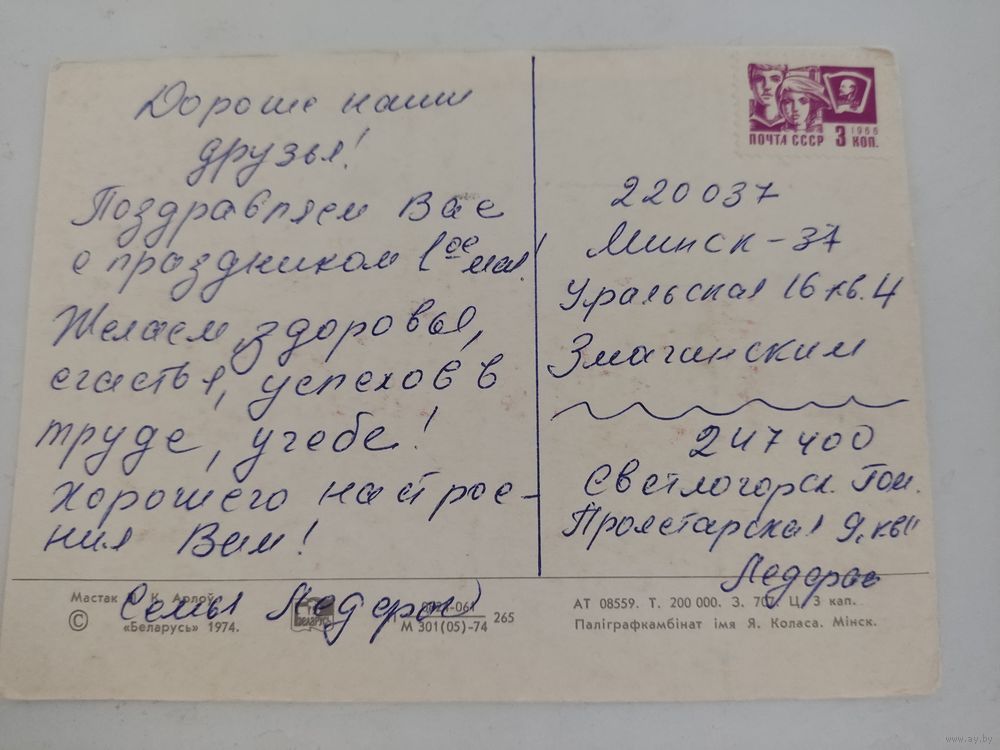 Дорогие наши
друзья!
Поздравляем Вас
с праздником 1ое мая!
Желаем здоровья,
счастья, успехов в
труде, учебе!
Хорошего настрое-
ния Вам!
Семья Ледер
ПОЧТА СССР 3 КОП.
1966
220037
Минск-37
Уральская 16 кв. 4
Змагинским
247400
Светлогорск. Гом.
Пролетарская 9, кв
Мастак К. Арлоў
© «Беларусь» 1974.
БЕЛАРУСЬ
М 301(05)-74 265
АТ 08559. Т. 200 000. З. Ц. 3 кап.
Паліграфкамбінат імя Я. Коласа. Мінск.
www.ay.by